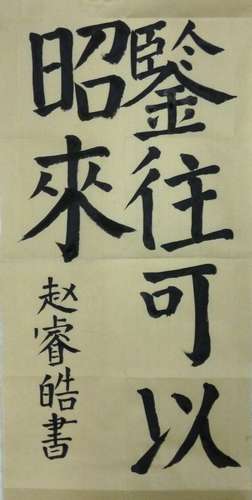 鑒往可以
昭來
赵睿皓書